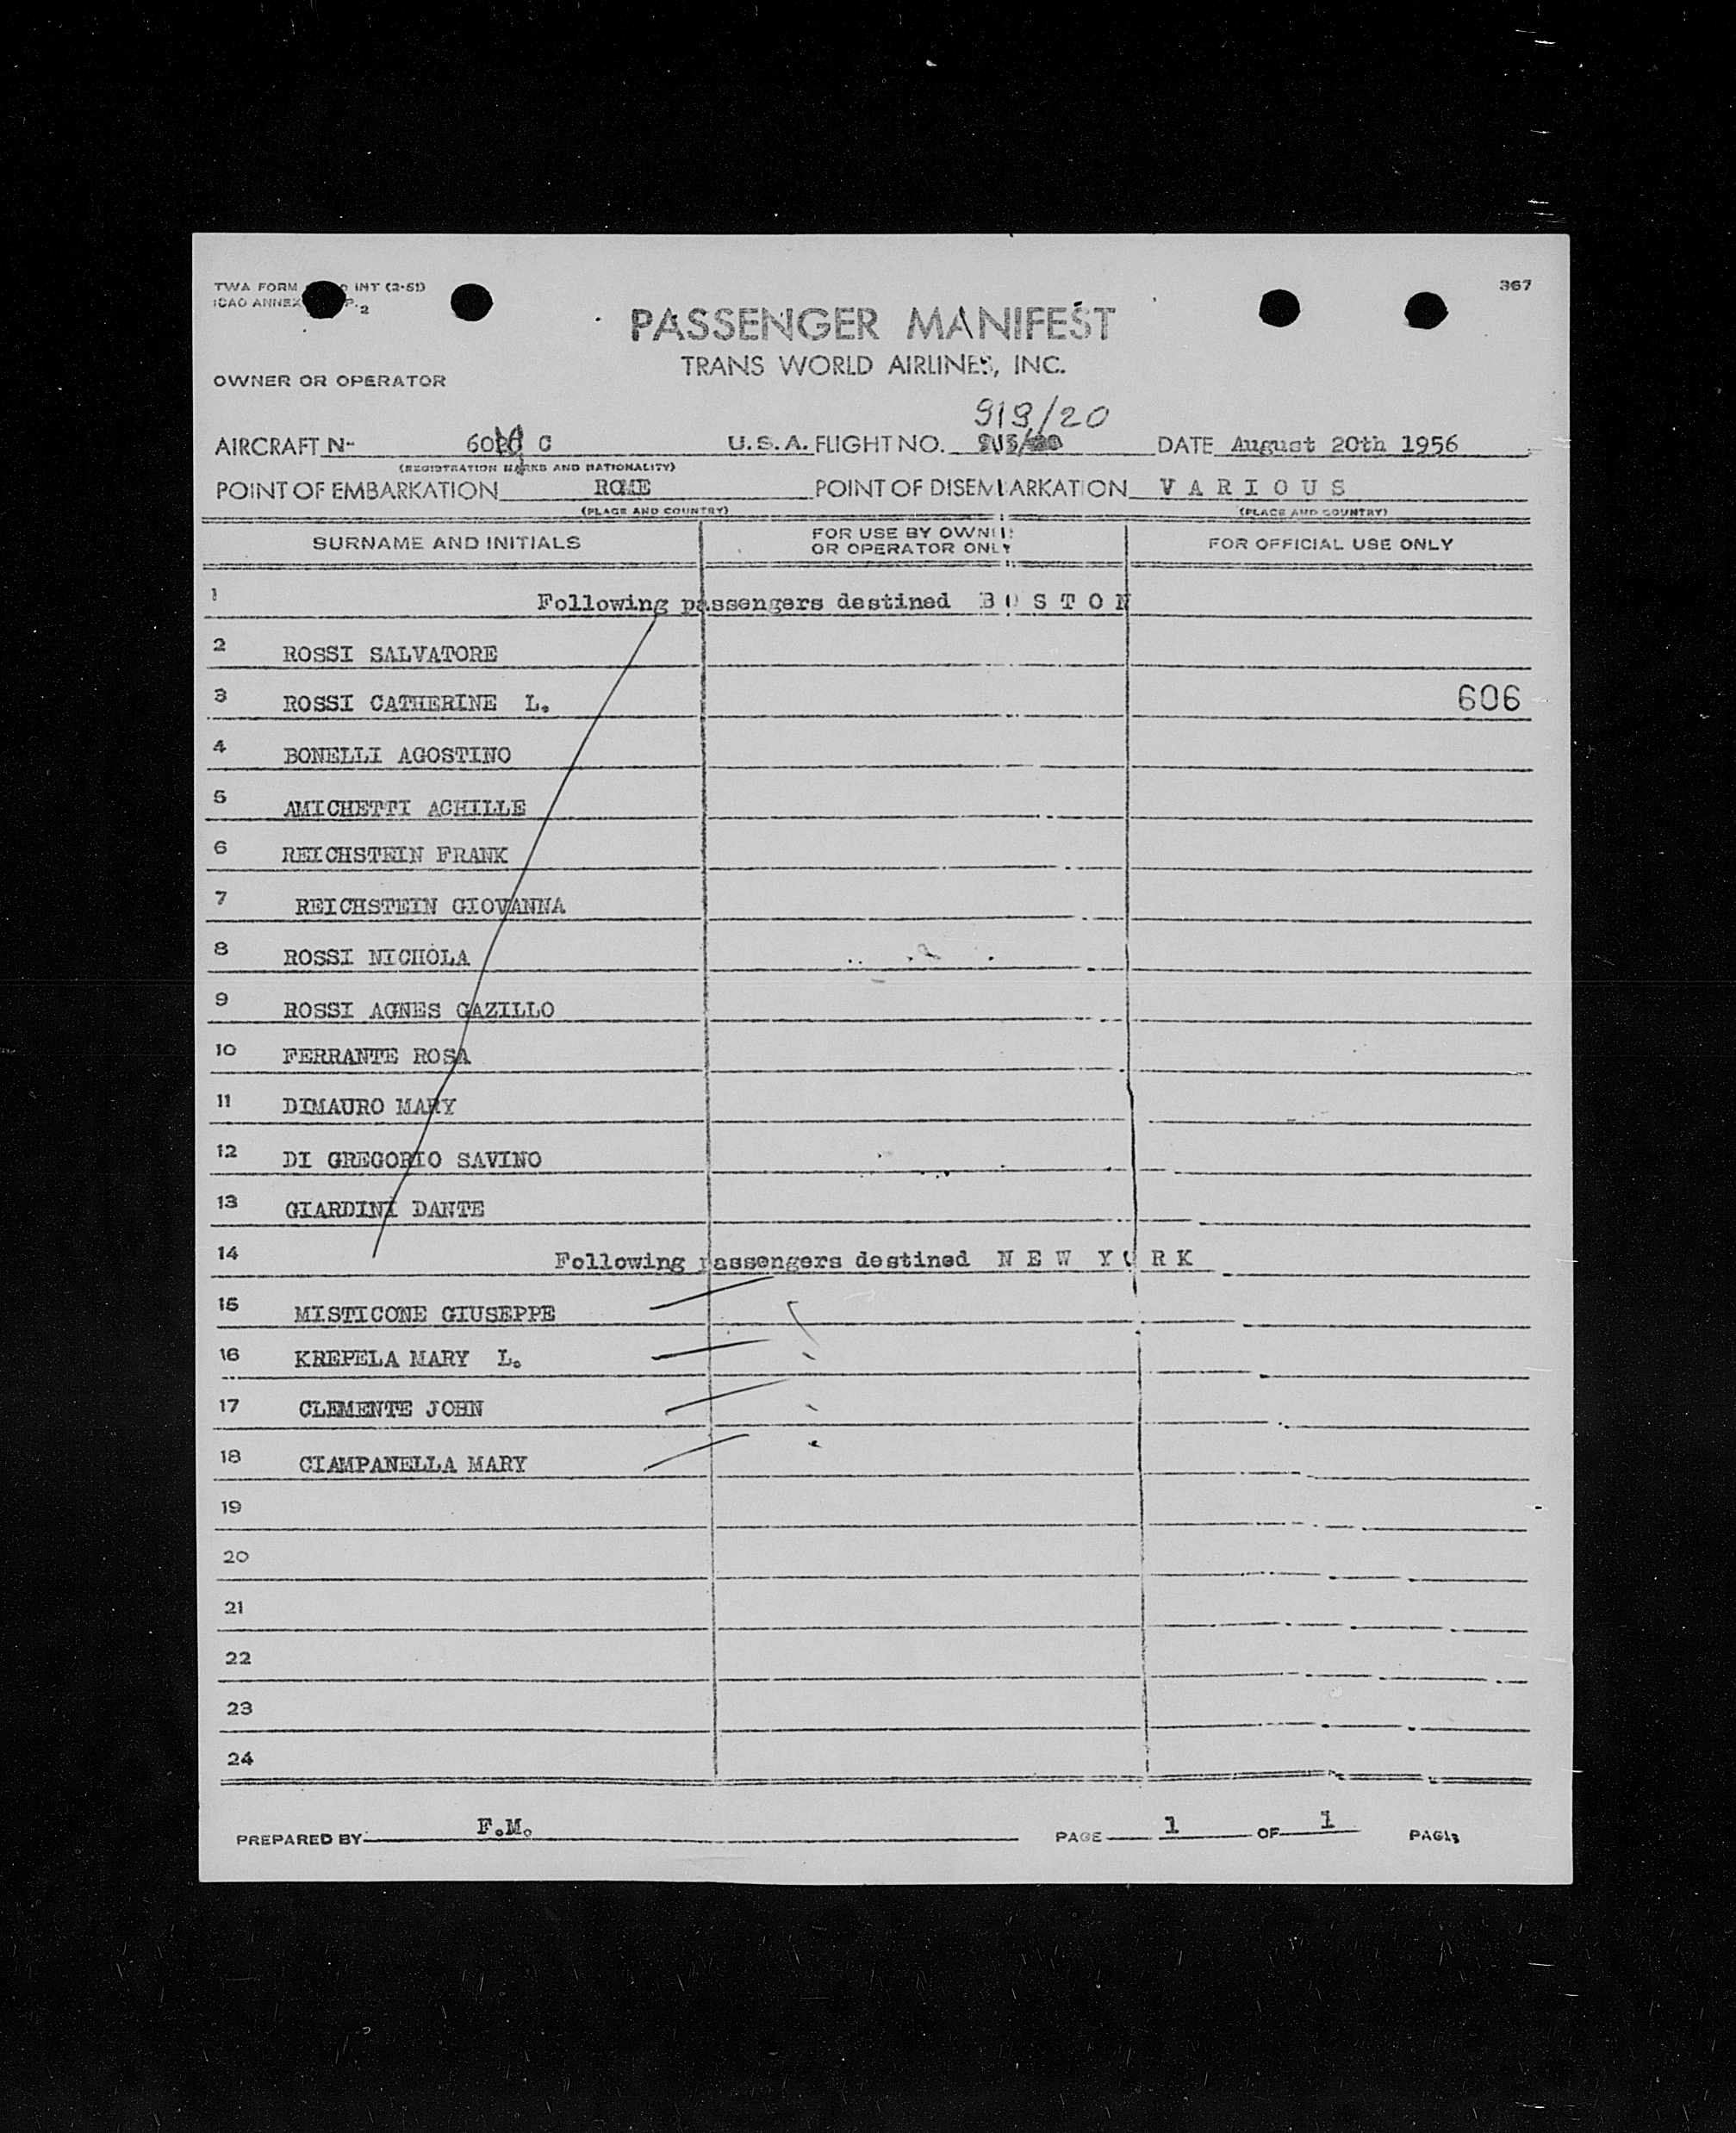 TWA FORM INT (2-51)
367
ICAO ANNEX P. 2
PASSENGER MANIFEST
TRANS WORLD AIRLINES, INC.
OWNER OR OPERATOR
919/20
AIRCRAFT N- C U.S.A. FLIGHT NO. DATE August 20th 1956
(REGISTRATION MARKS AND NATIONALITY)
POINT OF EMBARKATION ROME POINT OF DISEMBARKATION V A R I O U S
(PLACE AND COUNTRY) (PLACE AND COUNTRY)
SURNAME AND INITIALS
FOR USE BY OWNER
OR OPERATOR ONLY
FOR OFFICIAL USE ONLY
1 Following passengers destined B O S T O N
2 ROSSI SALVATORE
3 ROSSI CATHERINE L. 606
4 BONELLI AGOSTINO
5 AMICHETTI ACHILLE
6 REICHSTEIN FRANK
7 REICHSTEIN GIOVANNA
8 ROSSI NICHOLA
9 ROSSI AGNES GAZILLO
10 FERRANTE ROSA
11 DIMAURO MARY
12 DI GREGORIO SAVINO
13 GIARDINI DANTE
14 Following passengers destined N E W Y O R K
15 MISTICONE GIUSEPPE
16 KREPELA MARY L.
17 CLEMENTE JOHN
18 CIAMPANELLA MARY
19
20
21
22
23
24
PREPARED BY F.M. PAGE 1 OF 1 PAGES